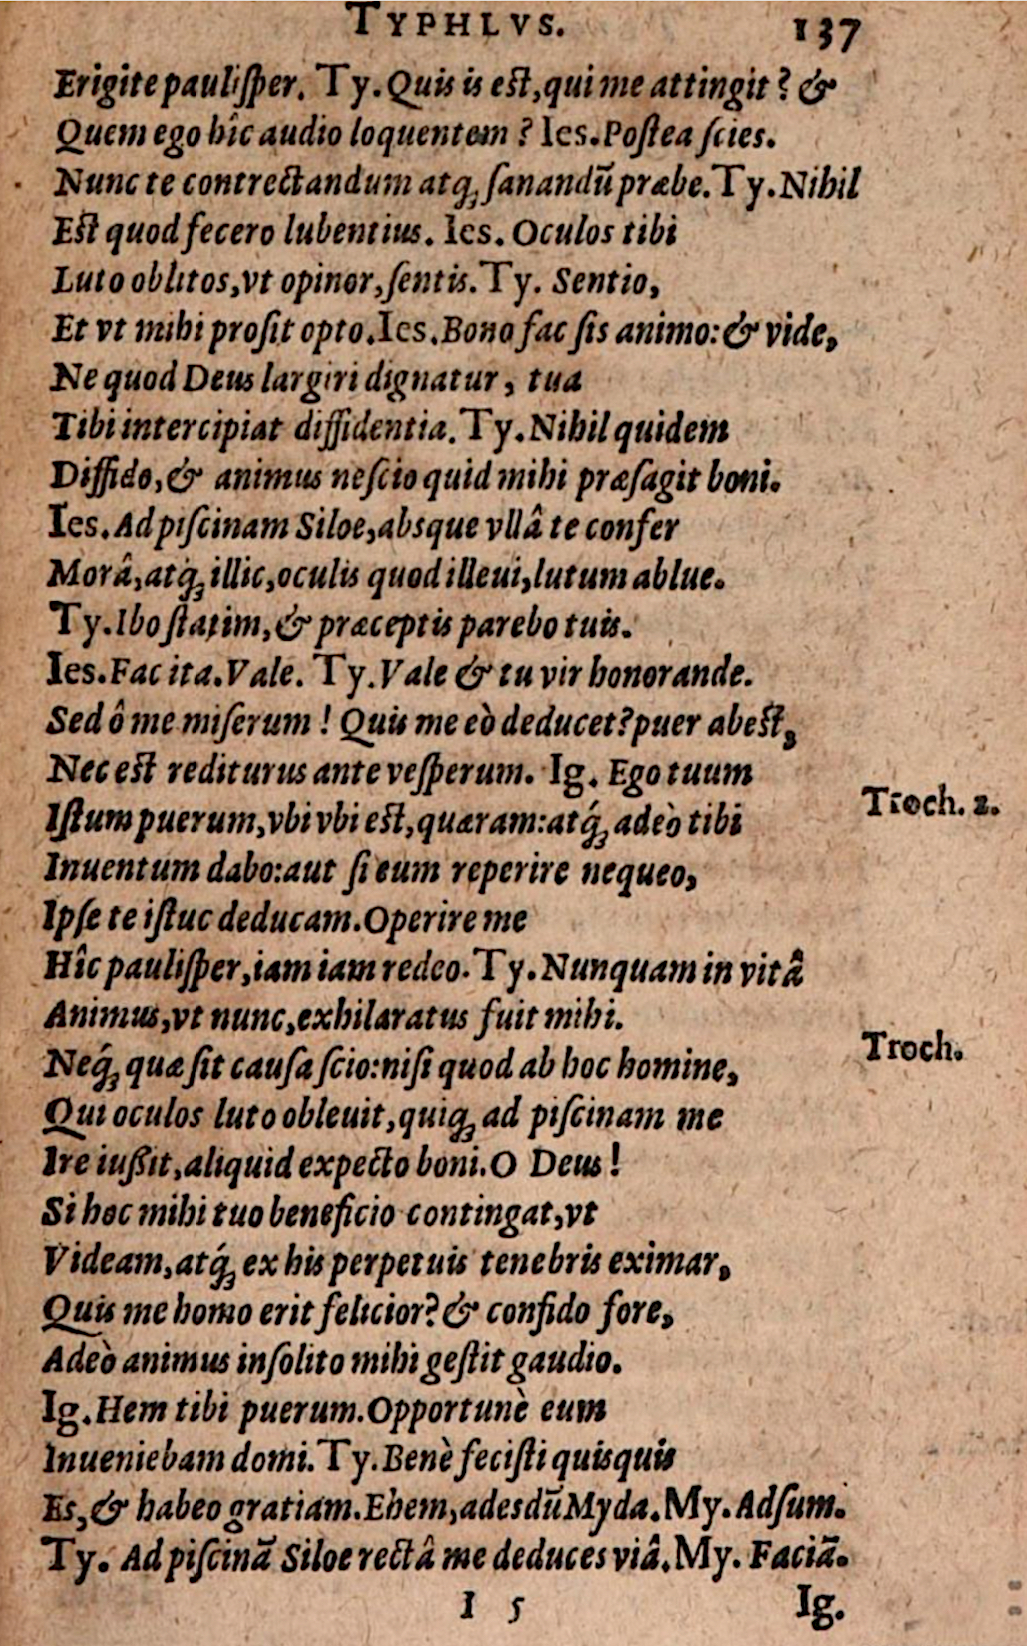 TYPHLVS. 137
Erigite pauliſper. Ty. Quis is eſt, qui me attingit? &
Quem ego hîc audio loquentem? Ies. Poſtea ſcies.
Nunc te contrectandum atq; ſanandū præbe. Ty. Nihil
Eſt quod fecero lubentius. Ies. Oculos tibi
Luto oblitos, vt opinor, ſentis. Ty. Sentio,
Et vt mihi proſit opto. Ies. Bono fac ſis animo: & vide,
Ne quod Deus largiri dignatur, tua
Tibi intercipiat diffidentia. Ty. Nihil quidem
Diffido, & animus neſcio quid mihi præſagit boni.
Ies. Ad piſcinam Siloe, absque vllâ te confer
Morâ, atq́; illic, oculis quod illeui, lutum ablue.
Ty. Ibo ſtatim, & præceptis parebo tuis.
Ies. Fac ita. Vale. Ty. Vale & tu vir honorande.
Sed ô me miſerum! Quis me eò deducet? puer abeſt,
Nec eſt rediturus ante veſperum. Ig. Ego tuum
Troch. 2.
Iſtum puerum, vbi vbi eſt, quæram: atq́; adeò tibi
Inuentum dabo: aut ſi eum reperire nequeo,
Ipſe te iſtuc deducam. Operire me
Hîc pauliſper, iam iam redeo. Ty. Nunquam in vitâ
Animus, vt nunc, exhilaratus fuit mihi.
Troch.
Neq́; quæ ſit cauſa ſcio: niſi quod ab hoc homine,
Qui oculos luto obleuit, quiq; ad piſcinam me
Ire iußit, aliquid expecto boni. O Deus!
Si hoc mihi tuo beneficio contingat, vt
Videam, atq́; ex his perpetuis tenebris eximar,
Quis me homo erit felicior? & confido fore,
Adeò animus inſolito mihi geſtit gaudio.
Ig. Hem tibi puerum. Opportunè eum
Inueniebam domi. Ty. Benè feciſti quisquis
Es, & habeo gratiam. Ehem, adesdū Myda. My. Adſum.
Ty. Ad piſcinā Siloe rectâ me deduces viâ. My. Faciā.
I 5 Ig.